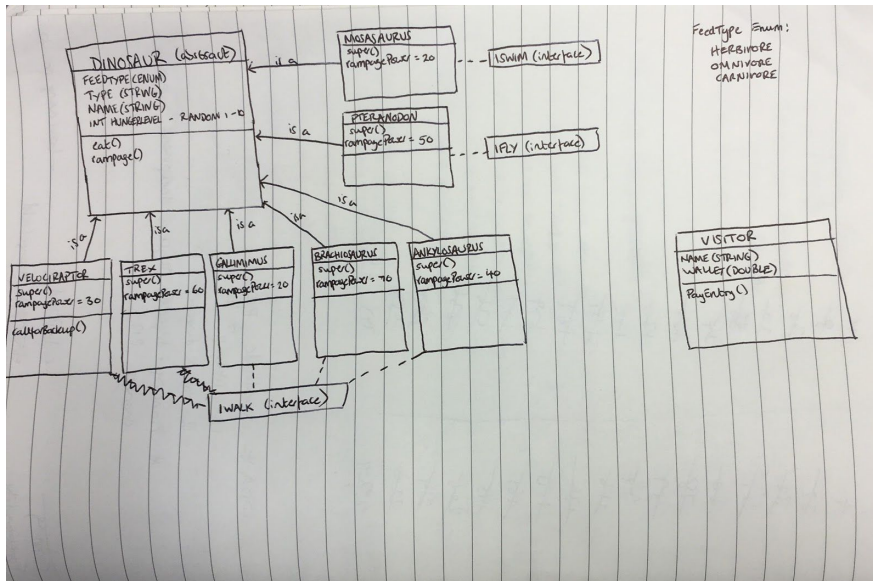 DINOSAUR (abstract)
FEEDTYPE (ENUM)
TYPE (STRING)
NAME (STRING)
INT HUNGERLEVEL - RANDOM 1-10
eat()
rampage()
is a
MOSASAURUS
super()
rampagePower = 20
ISWIM (interface)
is a
PTERANODON
super()
rampagePower = 50
IFLY (interface)
FeedType Enum:
HERBIVORE
OMNIVORE
CARNIVORE
is a
is a
is a
is a
is a
VELOCIRAPTOR
super()
rampagePower = 30
callforBackup()
TREX
super()
rampagePower = 60
GALLIMIMUS
super()
rampagePower = 20
BRACHIOSAURUS
super()
rampagePower = 70
ANKYLOSAURUS
super()
rampagePower = 40
IWALK (interface)
VISITOR
NAME (STRING)
WALLET (DOUBLE)
PayEntry()